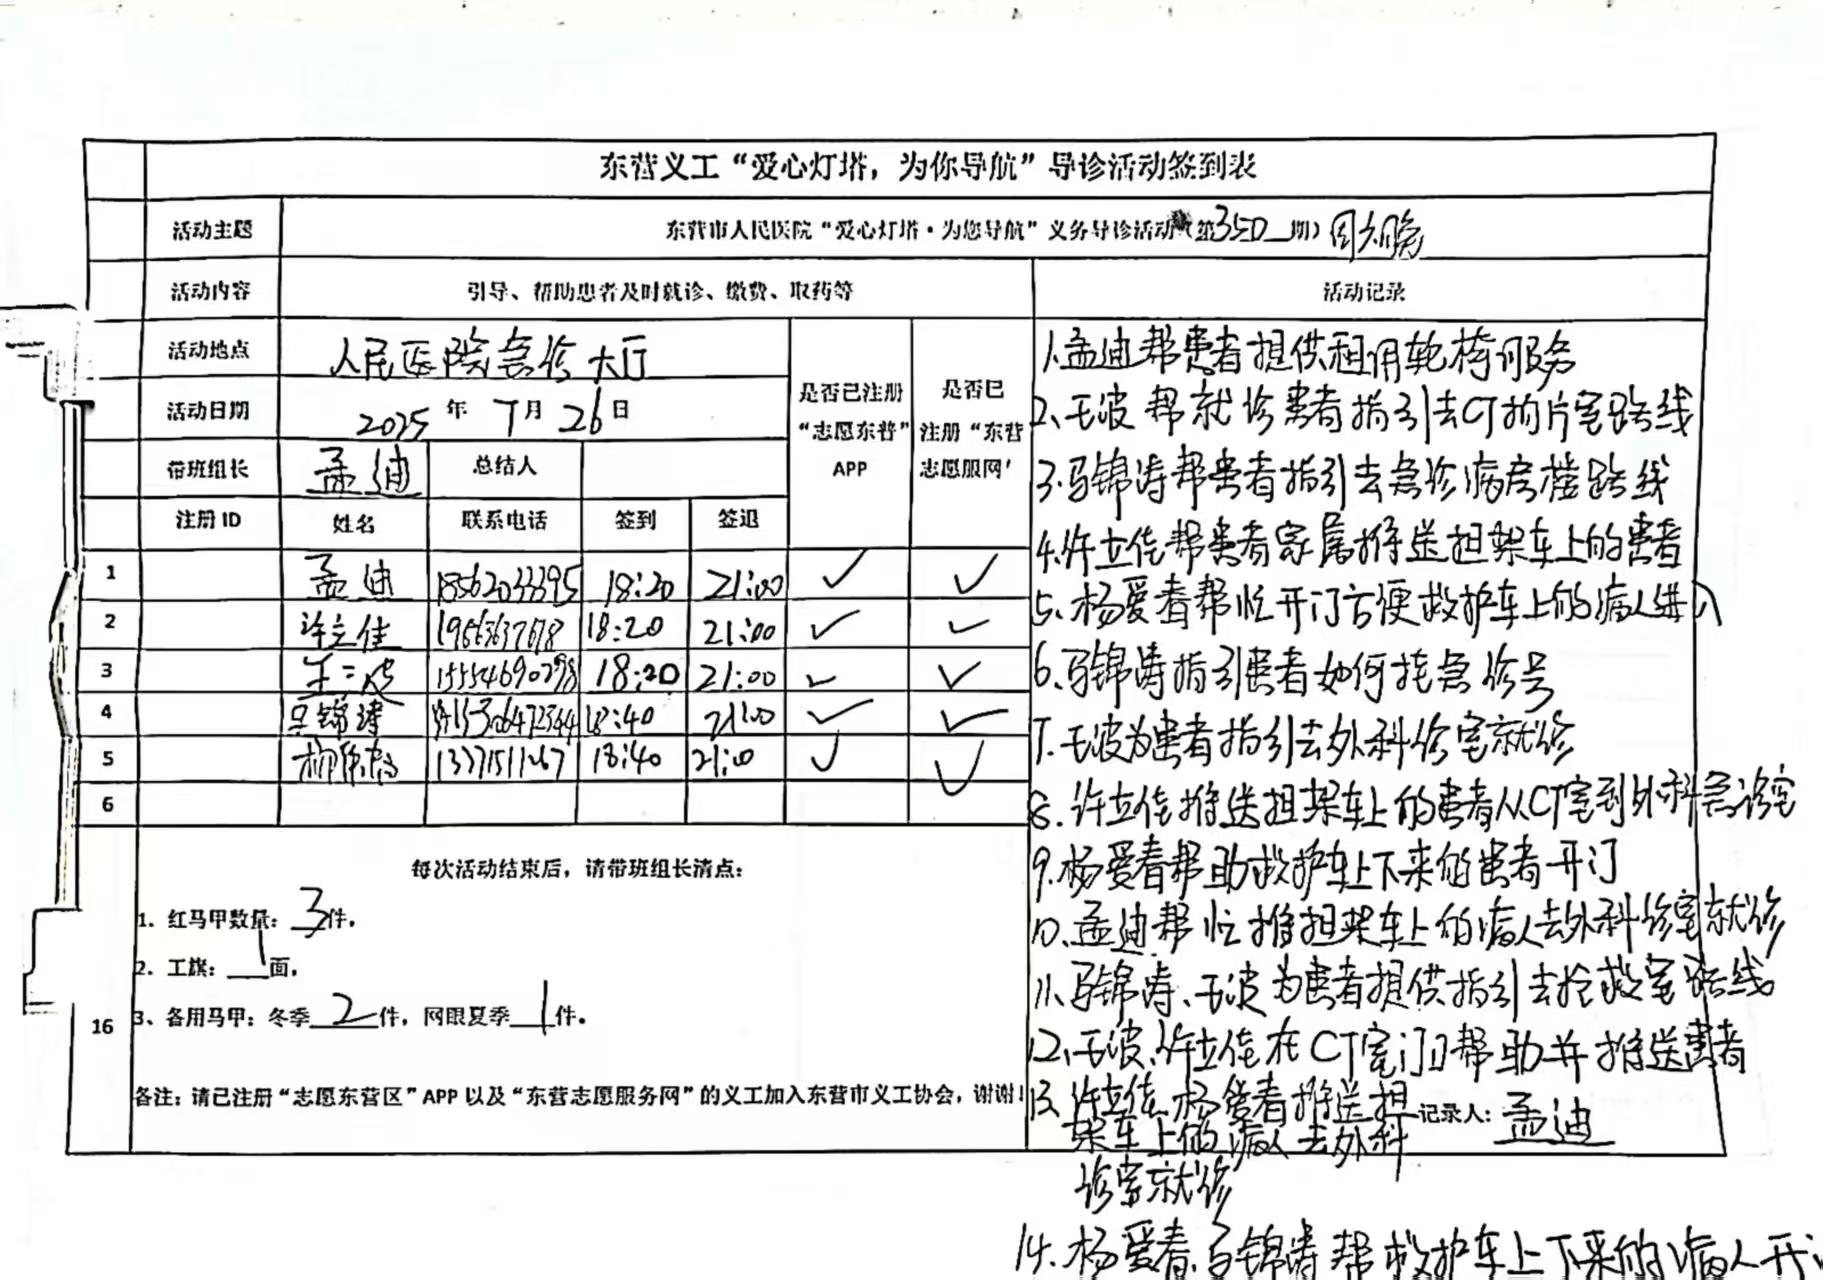 东营义工“爱心灯塔，为你导航”导诊活动签到表
活动主题 东营市人民医院“爱心灯塔·为您导航”义务导诊活动（第350期）
活动内容 引导、帮助患者及时就诊、缴费、取药等 活动记录
活动地点 人民医院急诊大厅
活动日期 2025年7月26日
是否已注册“志愿东营”APP
是否已注册“东营志愿服网'
带班组长 孟迪 总结人
注册ID 姓名 联系电话 签到 签退
1 孟迪 18562033395 18:20 21:00 ✓ ✓
2 许立佳 18:20 21:00 ✓ ✓
3 王波 15554690298 18:20 21:00 ✓ ✓
4 马锦涛 18:40 21:00 ✓ ✓
5 18:40 21:00 ✓ ✓
6
每次活动结束后，请带班组长清点：
1. 红马甲数量：3件，
2. 工旗：1面，
3、各用马甲：冬季2件，网眼夏季1件。
16
各注：请已注册“志愿东营区”APP以及“东营志愿服务网”的义工加入东营市义工协会，谢谢！
1.孟迪帮患者提供租用轮椅服务
2、王波帮就诊患者指引去CT拍片室路线
3.马锦涛帮患者指引去急诊病房楼路线
4.许立佳帮患者家属推送担架车上的患者
5.杨爱春帮忙开门方便救护车上的病人进入
6.马锦涛指引患者如何挂急诊号
7.王波为患者指引去外科诊室就诊
8.许立佳推送担架车上的患者从CT室到外科急诊室
9.杨爱春帮助救护车上下来的患者开门
10.孟迪帮忙推担架车上的病人去外科诊室就诊
11.马锦涛、王波为患者提供指引去抢救室路线
12、王波、许立佳在CT室门口帮助并推送患者
13、许立佳、杨爱春推送担
架车上的病人去外科
诊室就诊
记录人：孟迪
14.杨爱春、马锦涛帮救护车上下来的病人开